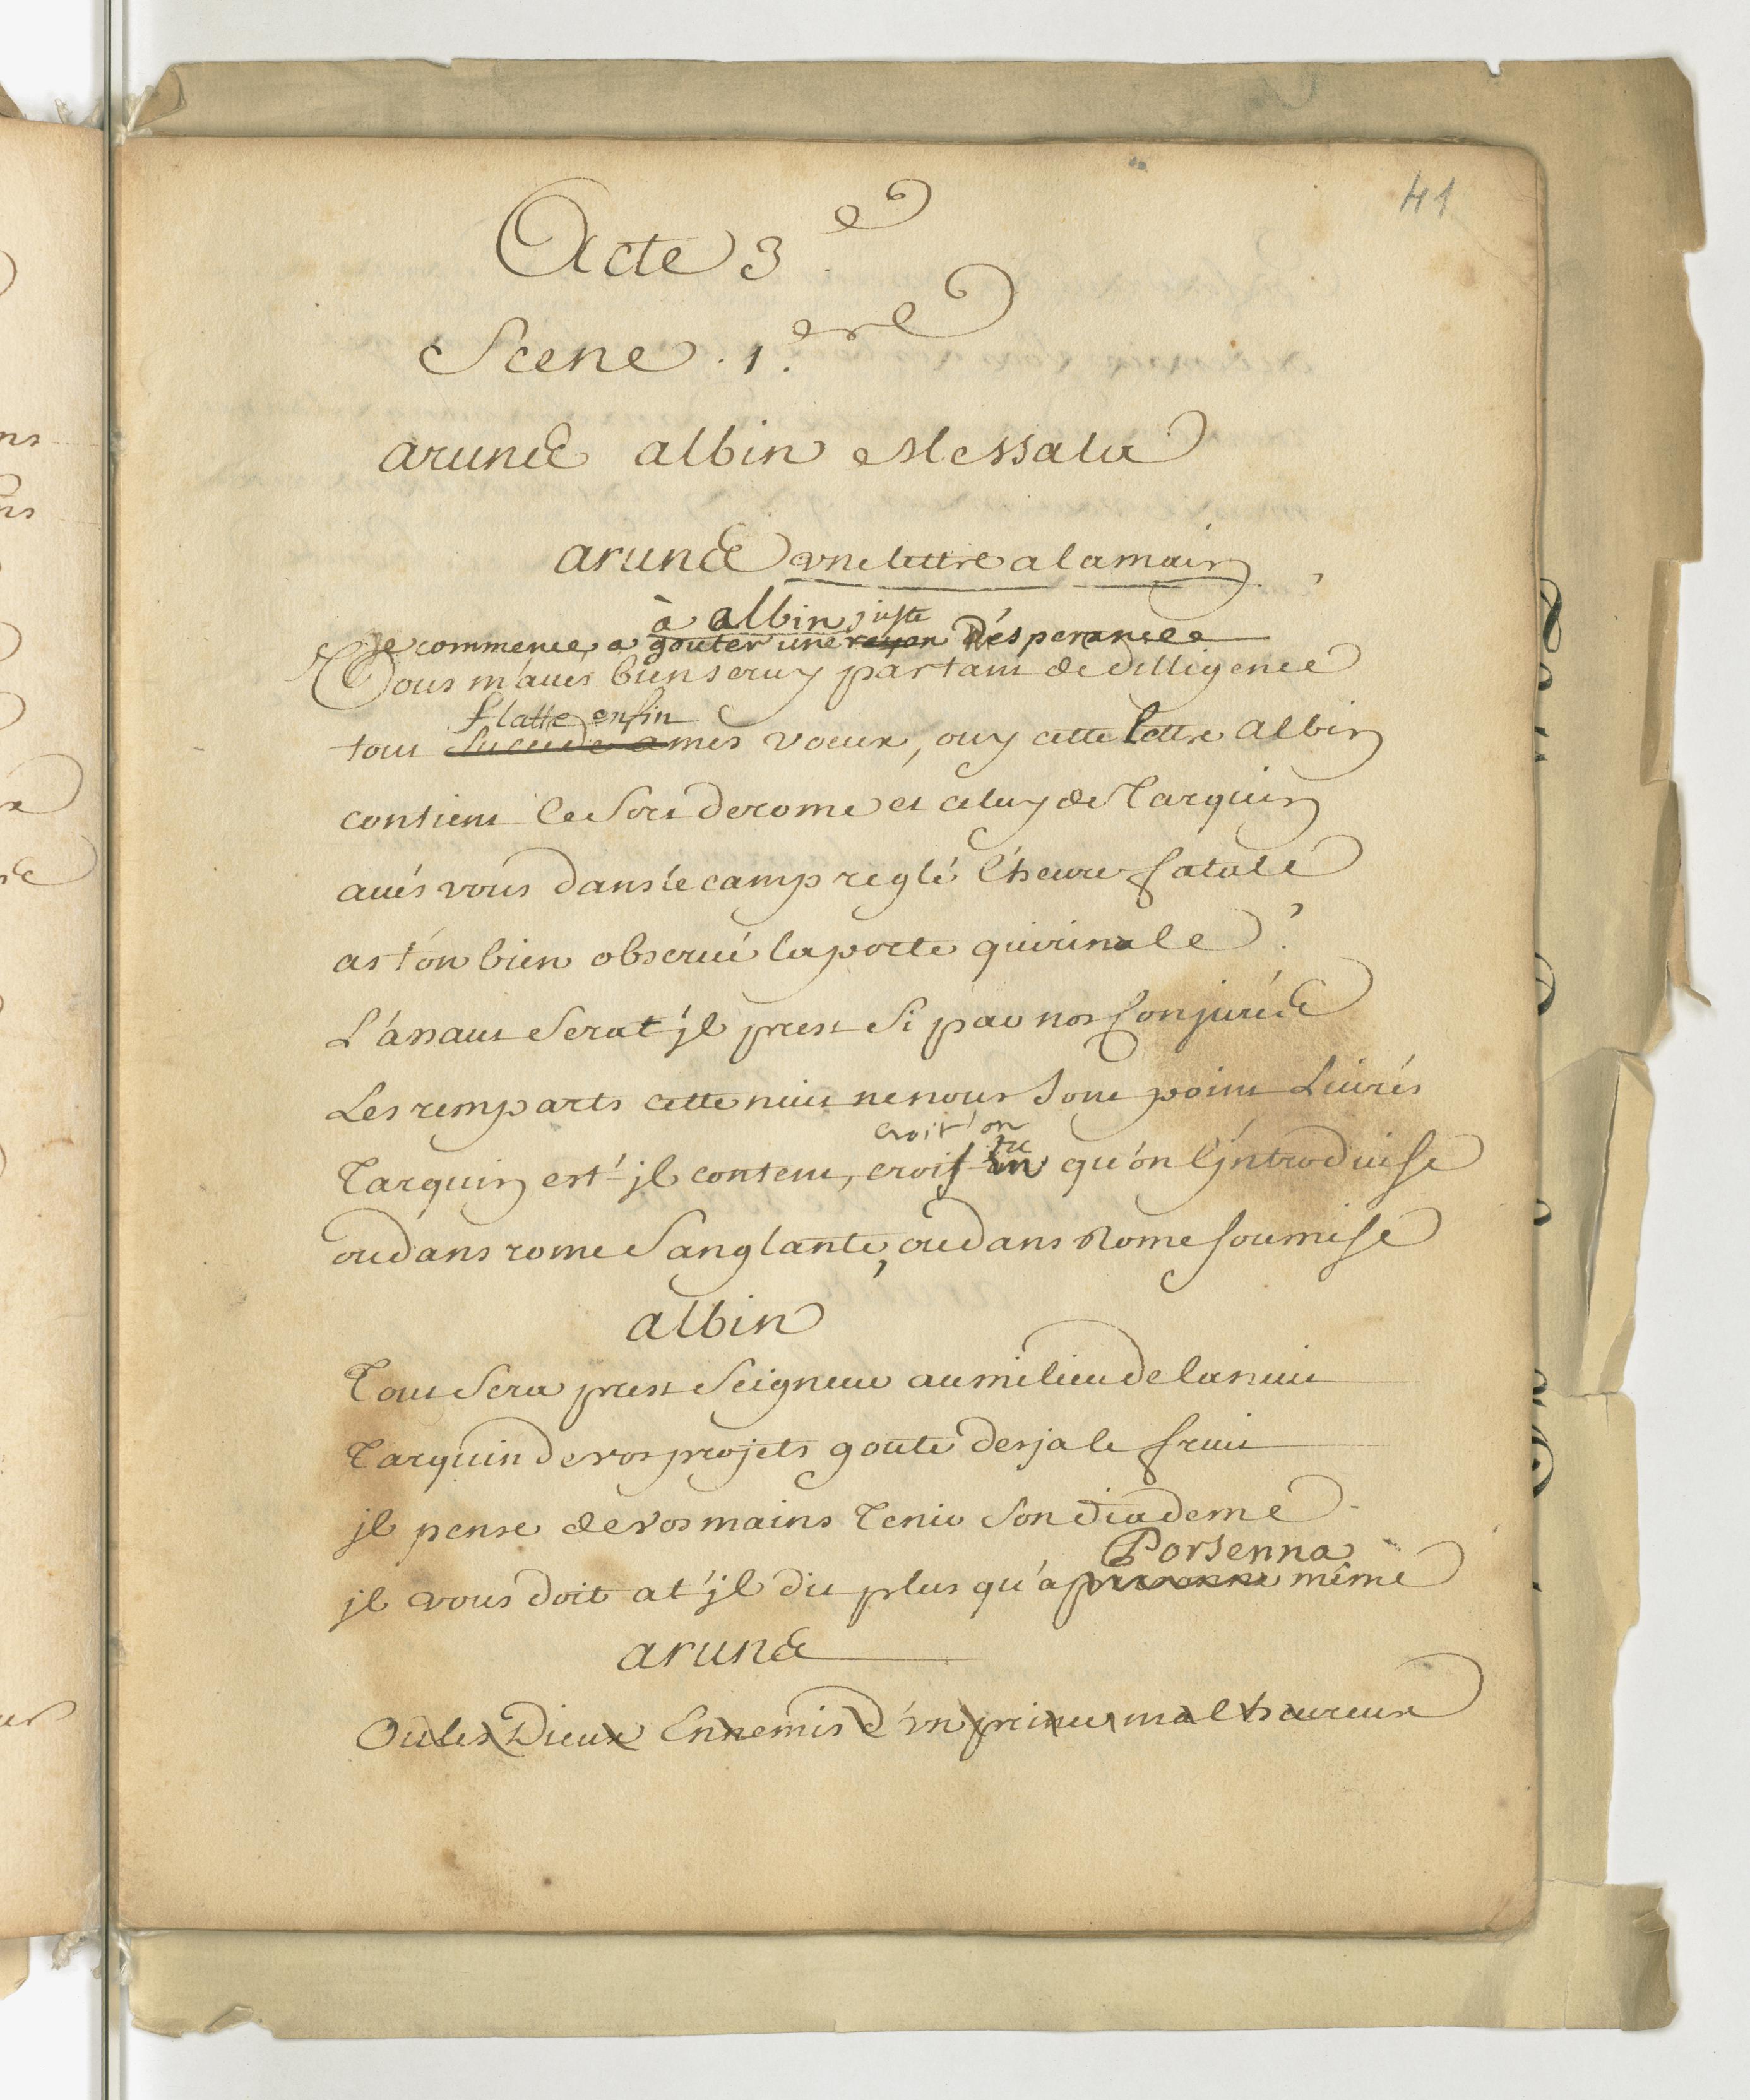 41
Acte 3e
Scene . 1.ere
aruns albin Messala
aruns une lettre a la main
à albin juste
Je commence a gouter une rayon d'ésperance
Vous m'aues bien seruy par tant de dilligence
flatte enfin
tout sucede a mes voeux, ouy cette lettre albin
contient le sort de rome et celuy de Tarquin
aués vous dans le camp reglé l'heure fatale
as t'on bien obserué la porte quirinale ?
L'assaut serat'jl prest si par nos conjurés
Les remparts cette nuit ne nous sont point Liurés
croit'on
Tarquin est-jl content, crois tu qu'on l'jntroduise
ou dans rome sanglante, ou dans Rome soumise
albin
Tout sera prest seigneur au milieu de la nuit
Tarquin de vos projets goute desja le fruit
jl pense de vos mains tenir son diademe
Porsenna
jl vous doit at'jl dit plus qu'a même
aruns
Ou les Dieux Ennemis d'un prince malheureux